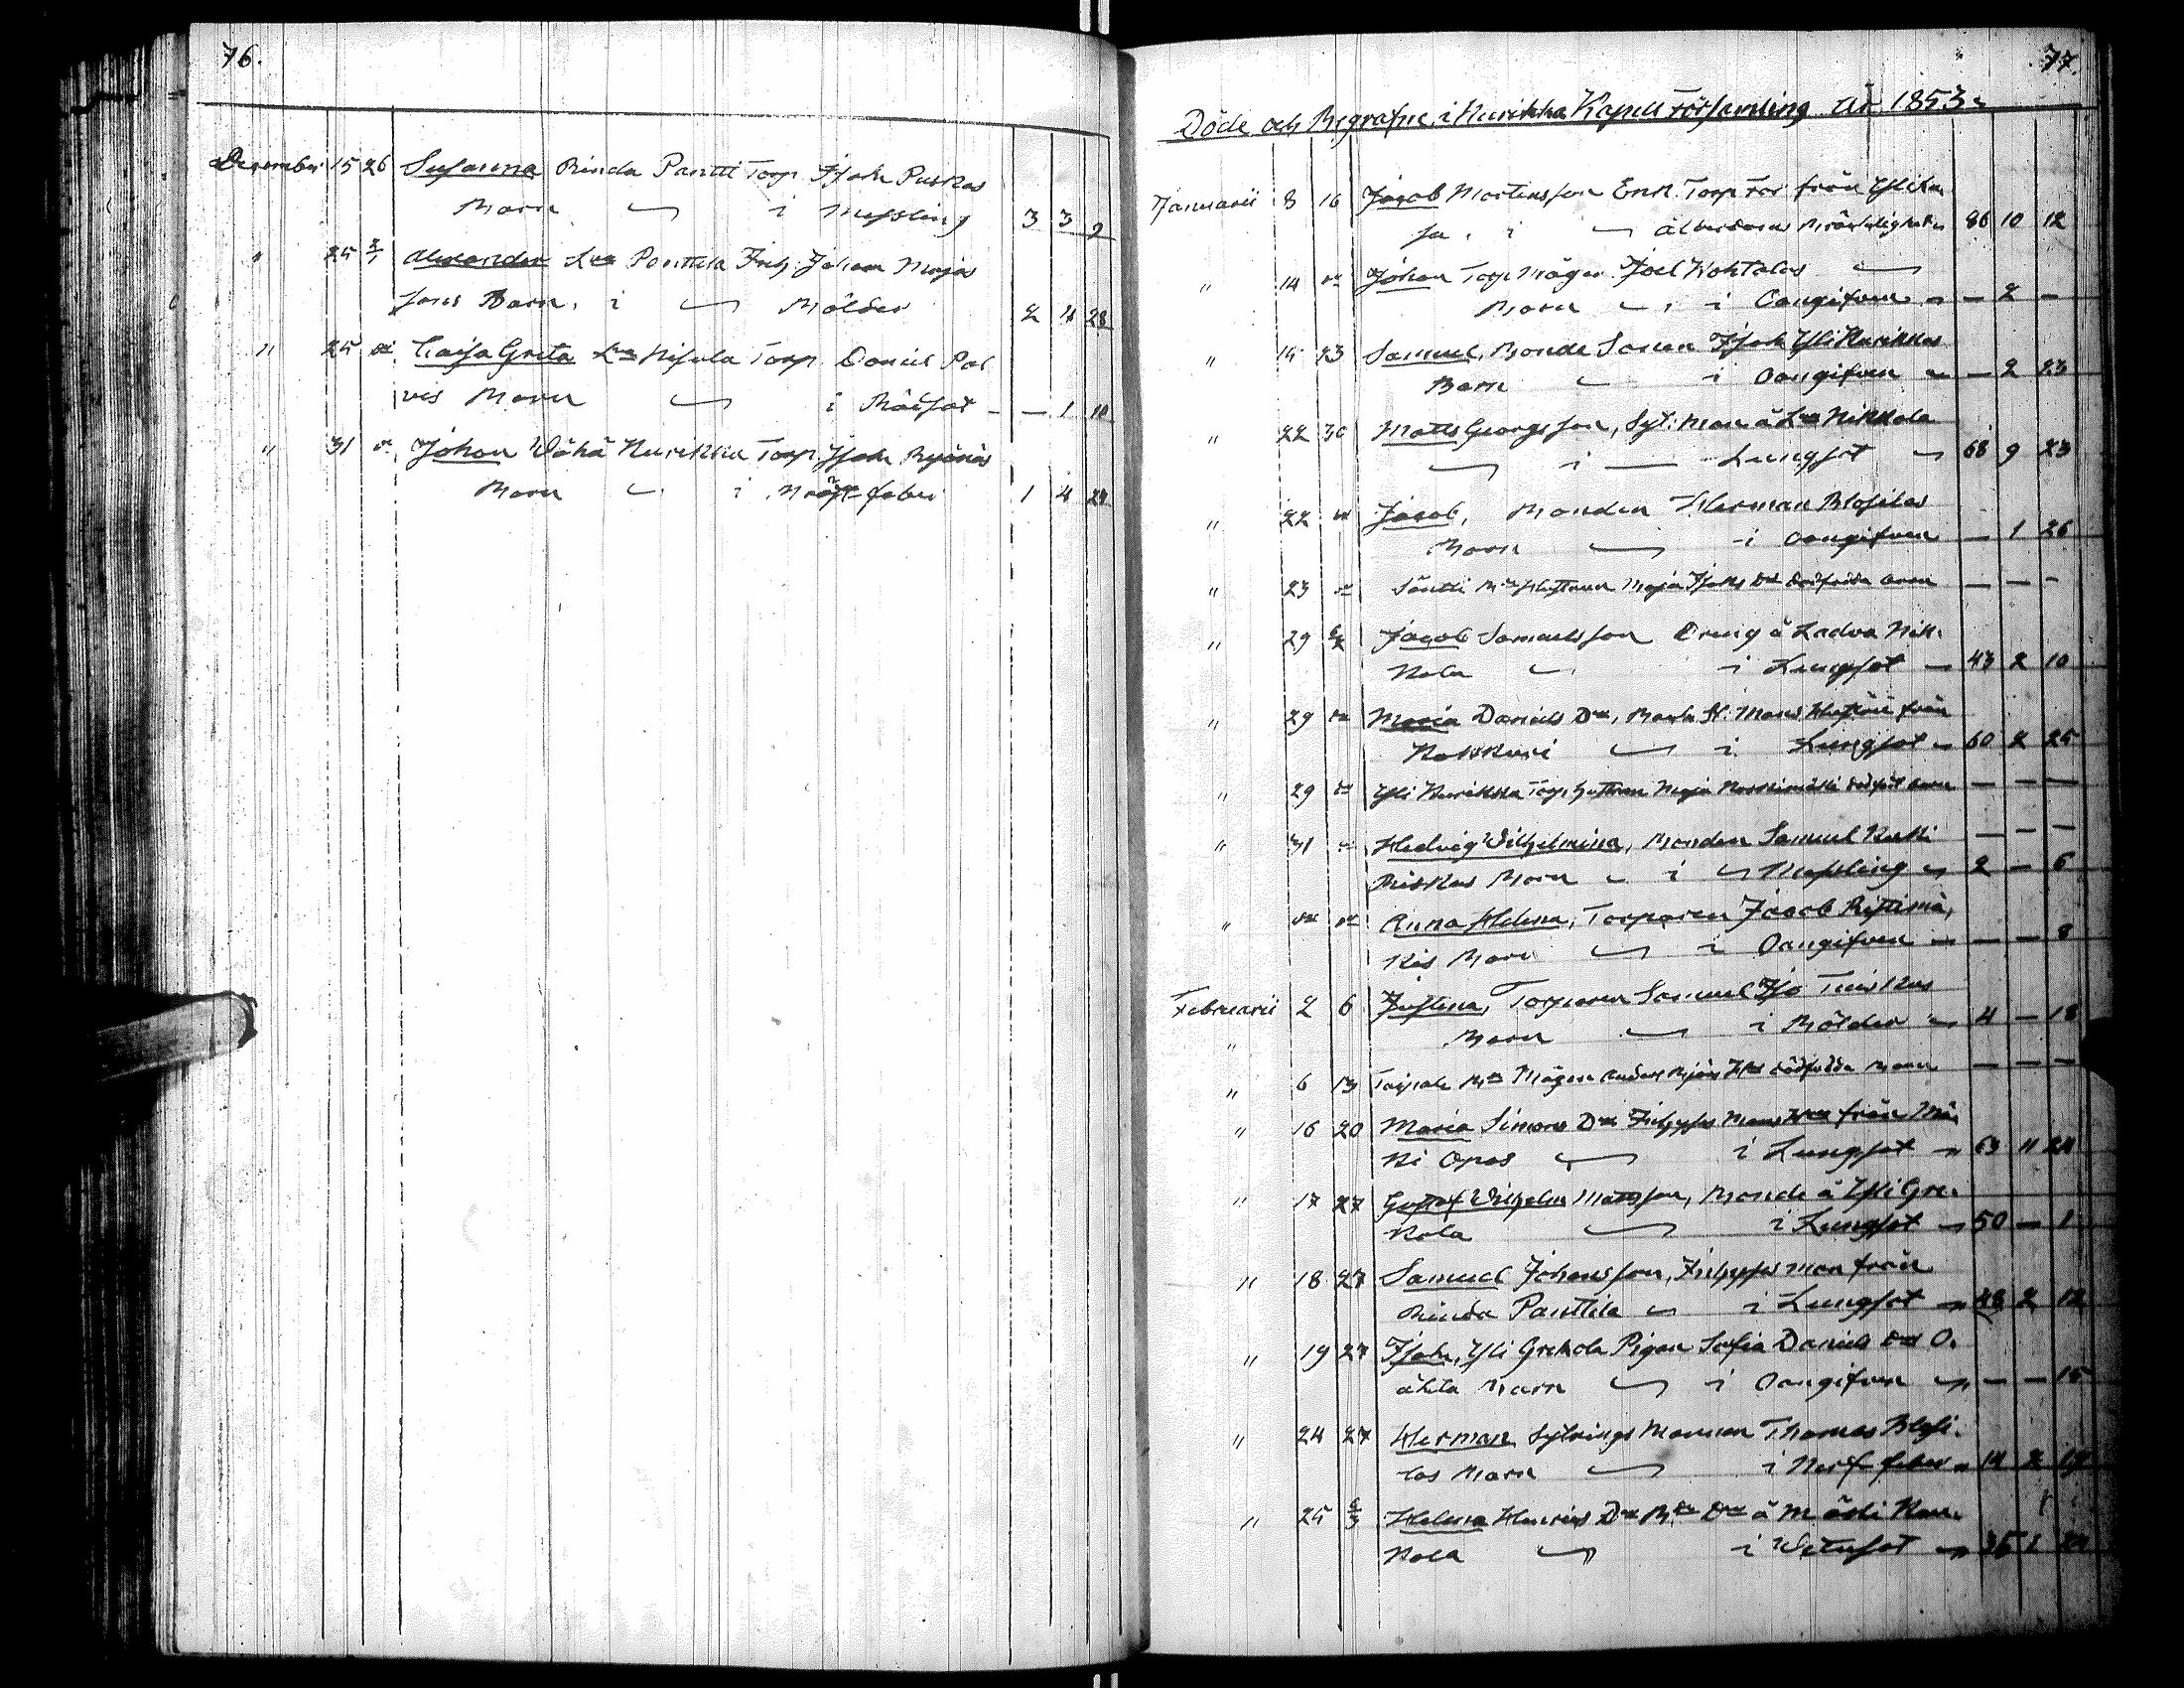 76.
December 15 26 Susanna Rinda Pantti Torp. Isak Puskas
Barn i Messling 3 3 9
" 25 2/1 Alexander L:la Panttila Inh: Johan Majas
sons Barn, i Bölder 2 4 28
" 25 d:o Caisa Greta L:la Nisula Torp. Daniel Pal
vis Barn i Räfsot - — 1 10
" 31 d:o Johan Wähä Kurikka Torp. Isak Byönäs
Barn i feber 1 4 24
77.
Döde och Begrafne i Kurikka Kapell Församling År 1853.
Januarii 8 16 Jacob Mortensson Enk. Torp. Far från
i Ålderdoms Bräcklighet 86 10 12
" 14 d:o Johan Torp. Mågen Joel Kohtalas
Barn i Oangifven — 2 —
" 15 23 Samuel, Bonde Sonen Isak Yli Kurikkas
Barn i Oangifven — 2 23
" 22 30 Matts Georgsson, Syt: Man å L:la Nikkola
i Lungsot 68 9 23
" 22 d:o Jacob, Bonden Herman
Barn i Oangifven — 1 26
" 23 d:o Säntti Hustrun Maja Isaks D:r dödfödda barn — — —
" 29 6/2 Jacob Samuelsson Dreng å Ladva Nik-
kola i Lungsot 43 2 10
" 29 d:o Maria Daniels D:r, Hustru från
Koskkari i Lungsot 60 2 25
" 29 d:o Yli Kurikka Torp. Hustrun Maja dödfödt barn — — —
" 31 d:o Hedvig Wilhelmina, Bonden Samuel — — —
Barn i Messling 2 — 6
" d:o d:o Anna Helena, Torparen Jacob Ristimä,
kis Barn i Oangifven — — 8
Februarii 2 6 Justina, Torparen Samuel Iso Tuiskus
" Barn i Bölder 4 — 18
" 6 13 Taipale Mågen dödfödda Barn — — —
" 16 20 Maria Simons D:r från Mä,
ki Opas i Lungsot 63 11 24
" 17 27 Gustaf Wilhelm Mattsson, Bonde å Yli Gre-
kola i Lungsot 50 — 1
" 18 27 Samuel Johansson, man från
Rinda Panttila i Lungsot 48 2 12
" 19 27 Isak, Yli Grekola Pigan Sofia Daniels D:r O.
äkta Barn i Oangifven — — 15
" 24 27 Herman Sytnings Mannen Thomas
las Barn i Nerf feber 14 2
" 25 6/3 Helena Henriks D:r B:de D:r å Mäki Kau-
kola i Wetusot 35 1